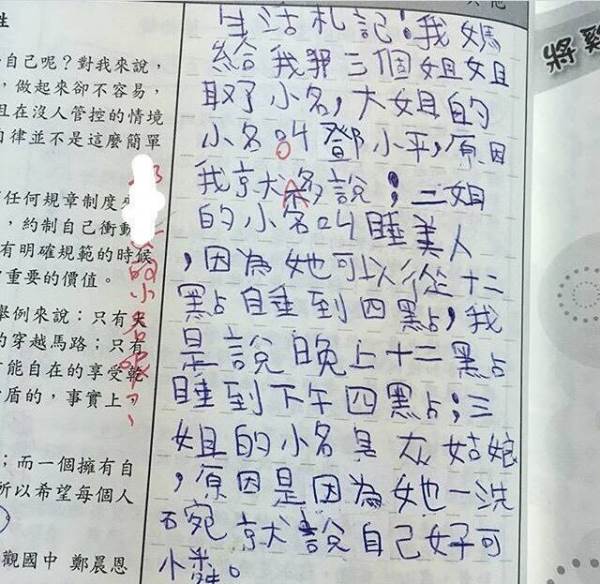 性
自己呢?對我來說,
,做起來卻不容易,
且在沒人管控的情境
自律並不是這麼簡單
任何規章制度
,約制自己衝動
有明確規範的時候
重要的價值。
舉例來說:只有
的穿越馬路;只有
能自在的享受
盾的,事實上,
;而一個擁有自
所以希望每個人
觀國中 鄭晨恩
生活札記:我媽
給我三個姐姐
取了小名,大姐的
小名叫鄧小平,原因
我就不多說;二姐
的小名叫睡美人
,因為她可以從十二
點睡到四點,我
是說晚上十二點
睡到下午四點;三
姐的小名是灰姑娘
,原因是因為她一洗
碗就說自己好可
憐。
的小名呢
將